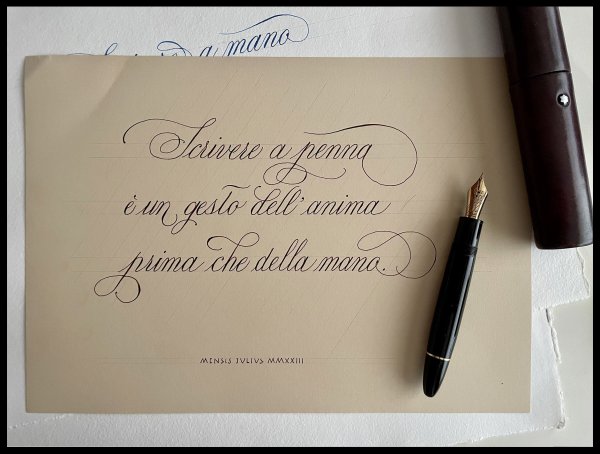 a mano
Scrivere a penna
è un gesto dell'anima
prima che della mano.
MENSIS JULIUS MMXXIII